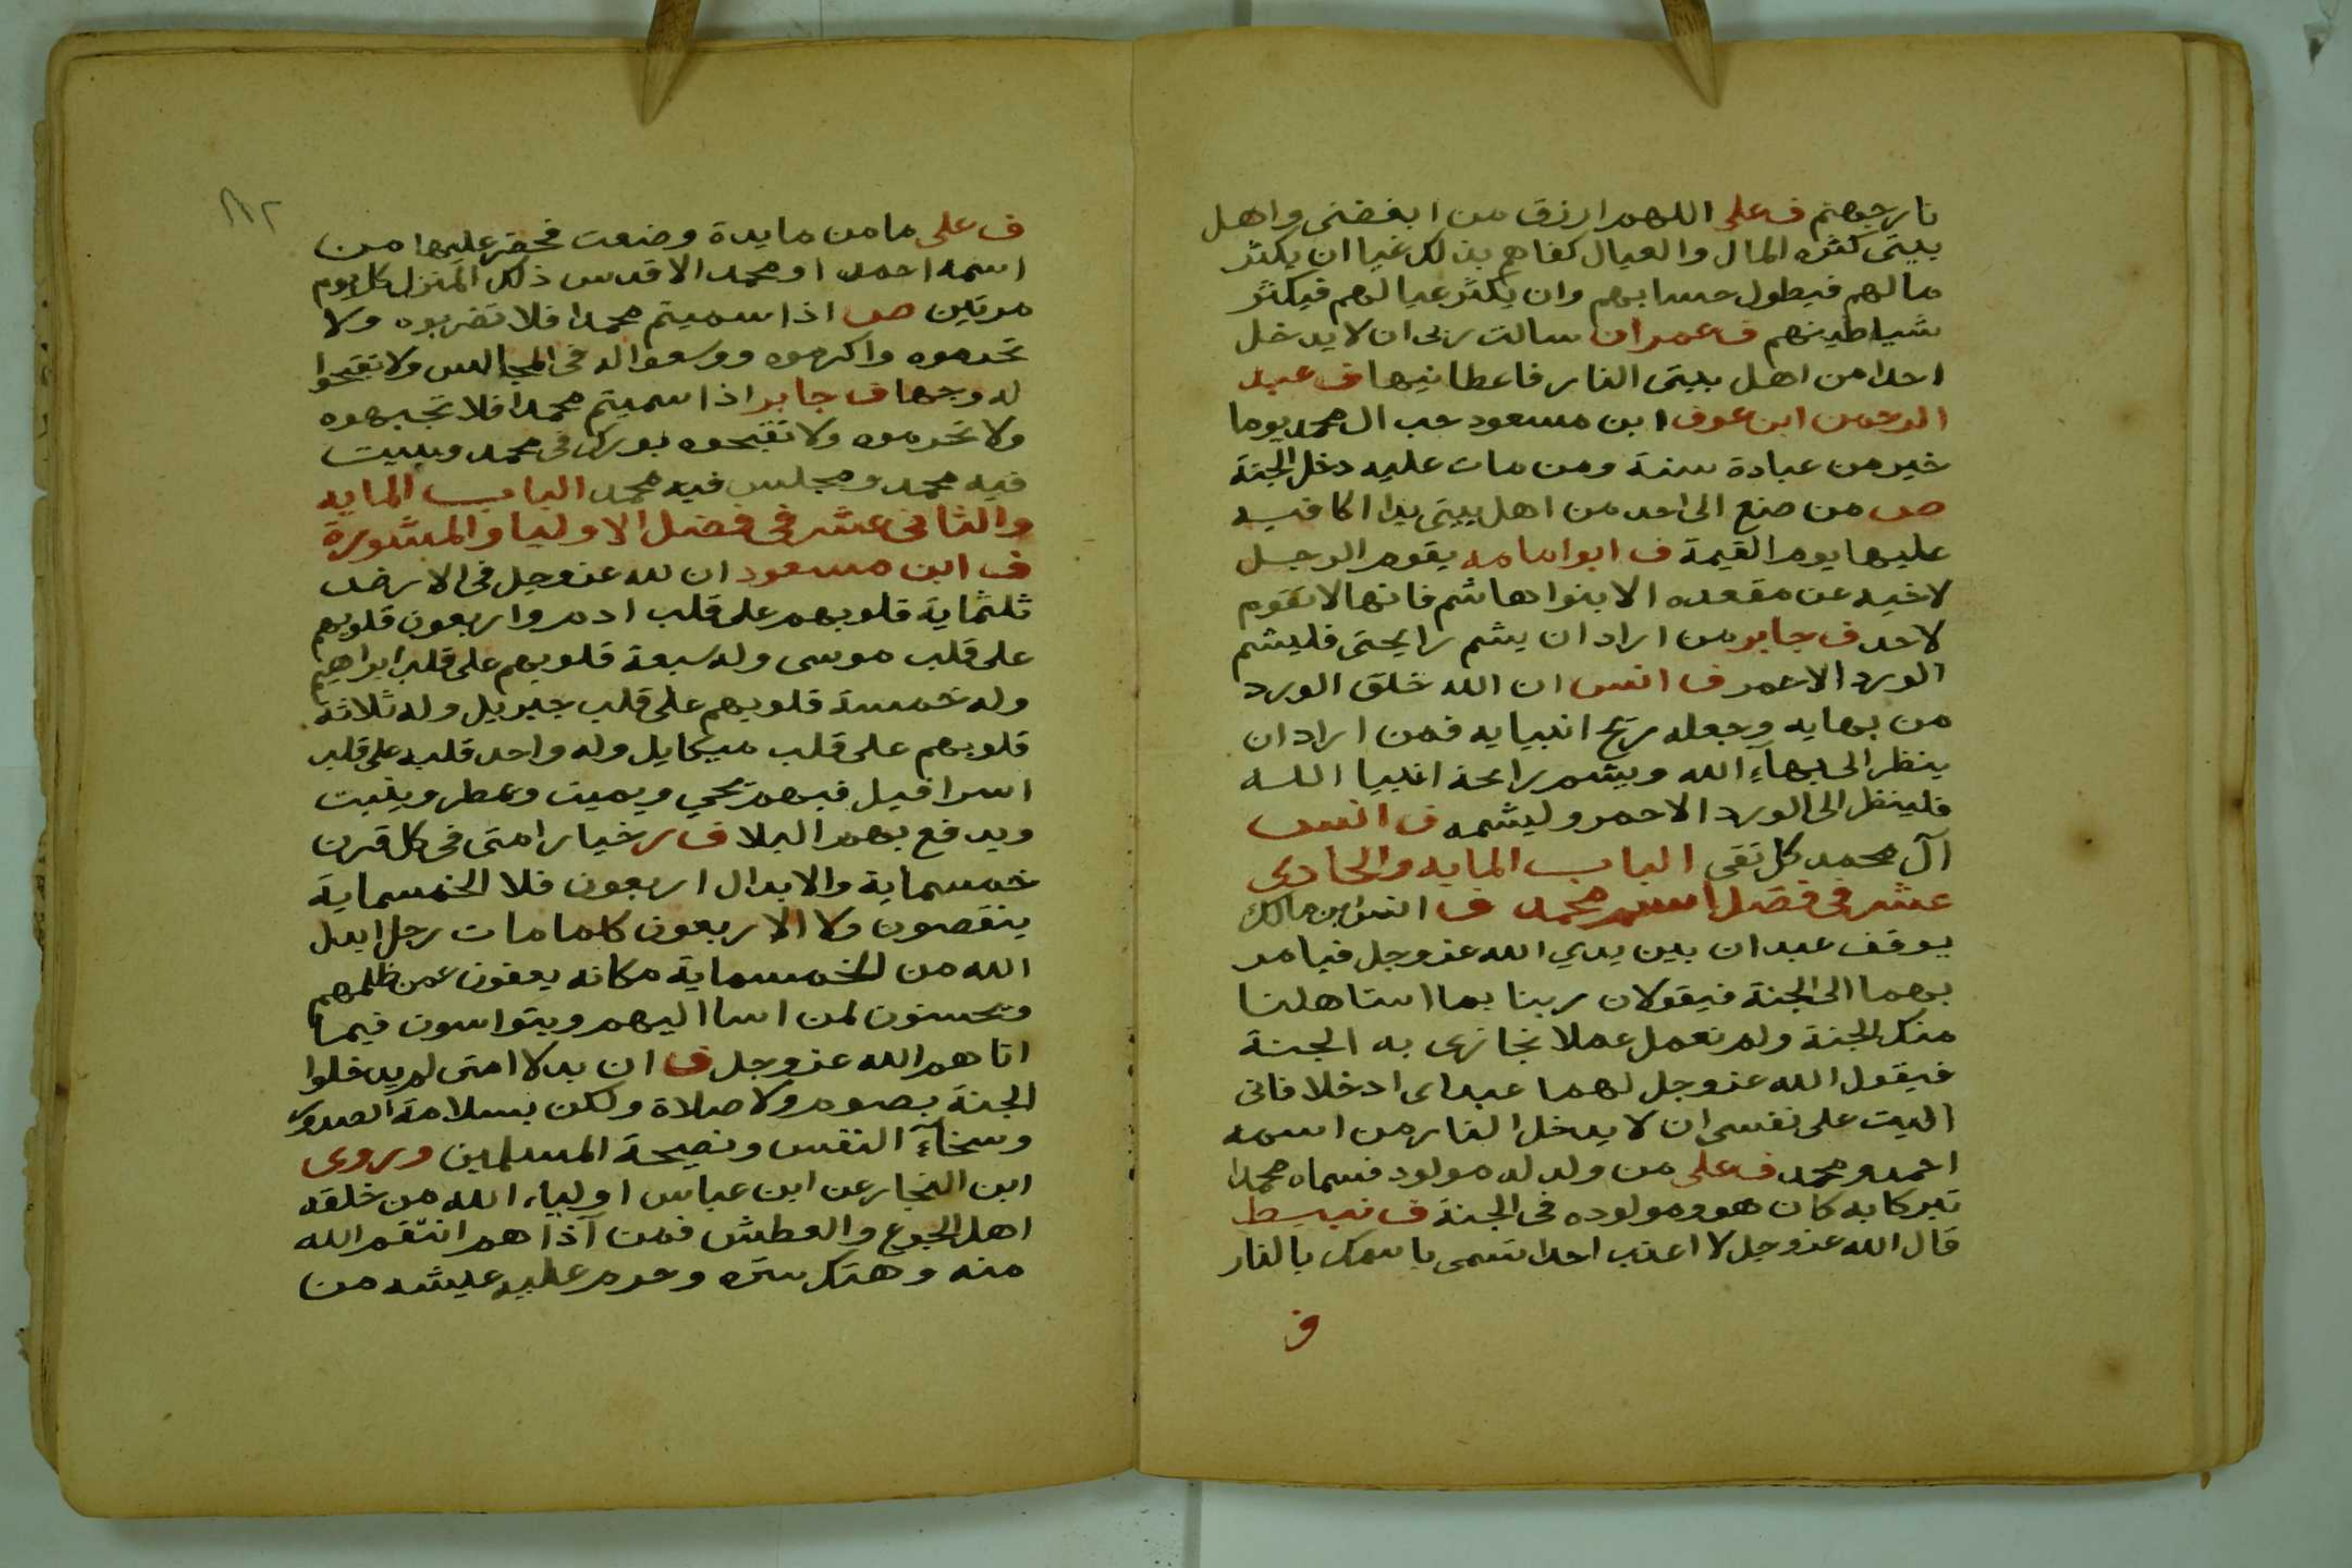 نار جهنم ف على اللهم ارزق من ابغضنى واهل
بيتى كثره المال والعيال كفاهم بذلك غيا ان يكثر
مالهم فيطول حسابهم وان يكثر عيالهم فيكثر
شياطينهم ف عمران سالت ربى ان لا يدخل
احدا من اهل بيتى النار فاعطانيها ف عبد
الرحمن ابن عوف ابن مسعود حب ال محمد يوما
خير من عبادة سنة ومن مات عليه دخل الجنة
ص من صنع الى احد من اهل بيتى يدا اكافيه
عليها يوم القيمة ف ابو امامه يقوم الرجل
لاخيه عن مقعده الا بنوا هاشم فانها لا تقوم
لاحد ف جابر من اراد ان يشم رايحتى فليشم
الورد الاحمر ف انس ان الله خلق الورد
من بهايه وجعله ريح انبيايه فمن اراد ان
ينظر الى بهاء الله ويشم رايحة انبيا الله
فلينظر الى الورد الاحمر وليشمه ف انس
آل محمد كل تقى الباب المايه والحادى
عشر فى فضل اسم محمد ف انس ابن مالك
يوقف عبدان بين يدي الله عز وجل فيامر
بهما الى الجنة فيقولان ربنا بما استاهلنا
منك الجنة ولم نعمل عملا تجازى به الجنة
فيقول الله عز وجل لهما عبداى ادخلا فانى
اليت على نفسى ان لا يدخل النار من اسمه
احمد ومحمد ف على من ولد له مولود فسماه محمدا
تبركا به كان هو ومولوده فى الجنة ف نبيط
قال الله عز وجل لا اعذب احدا تسمى باسمك بالنار
ف
١٨٢
ف على ما من مايدة وضعت فحضر عليها من
اسمه احمد او محمد الا قدس ذلك المنزل كل يوم
مرتين ص اذا سميتم محمدا فلا تضربوه ولا
تحرموه واكرموه ووسعوا له فى المجالس ولا تقبحوا
له وجها ف جابر اذا سميتم محمدا فلا تجبهوه
ولا تحرموه ولا تقبحوه بورك فى محمد وبيت
فيه محمد ومجلس فيه محمد الباب المايه
والثانى عشر فى فضل الاوليا والمشورة
ف ابن مسعود ان لله عز وجل فى الارض
ثلثماية قلوبهم على قلب ادم واربعون قلوبهم
على قلب موسى وله سبعة قلوبهم على قلب ابراهيم
وله خمسة قلوبهم على قلب جبريل وله ثلاثة
قلوبهم على قلب ميكايل وله واحد قلبه على قلب
اسرافيل فبهم يحي ويميت ويمطر وينبت
ويدفع بهم البلا ف ر خيار امتى فى كل قرن
خمسماية والابدال اربعون فلا الخمسماية
ينقصون ولا الاربعون كلما مات رجل ابدل
الله من الخمسماية مكانه يعفون عمن ظلمهم
ويحسنون لمن اسا اليهم ويتواسون فيما
اتاهم الله عز وجل ف ان بدلا امتى لم يدخلوا
الجنة بصوم ولا صلاة ولكن بسلامة الصدور
وسخآء النفس ونصيحة المسلمين وروى
ابن النجار عن ابن عباس اولياء الله من خلقه
اهل الجوع والعطش فمن آذاهم انتقم الله
منه وهتك ستره وحرم عليه عيشه من